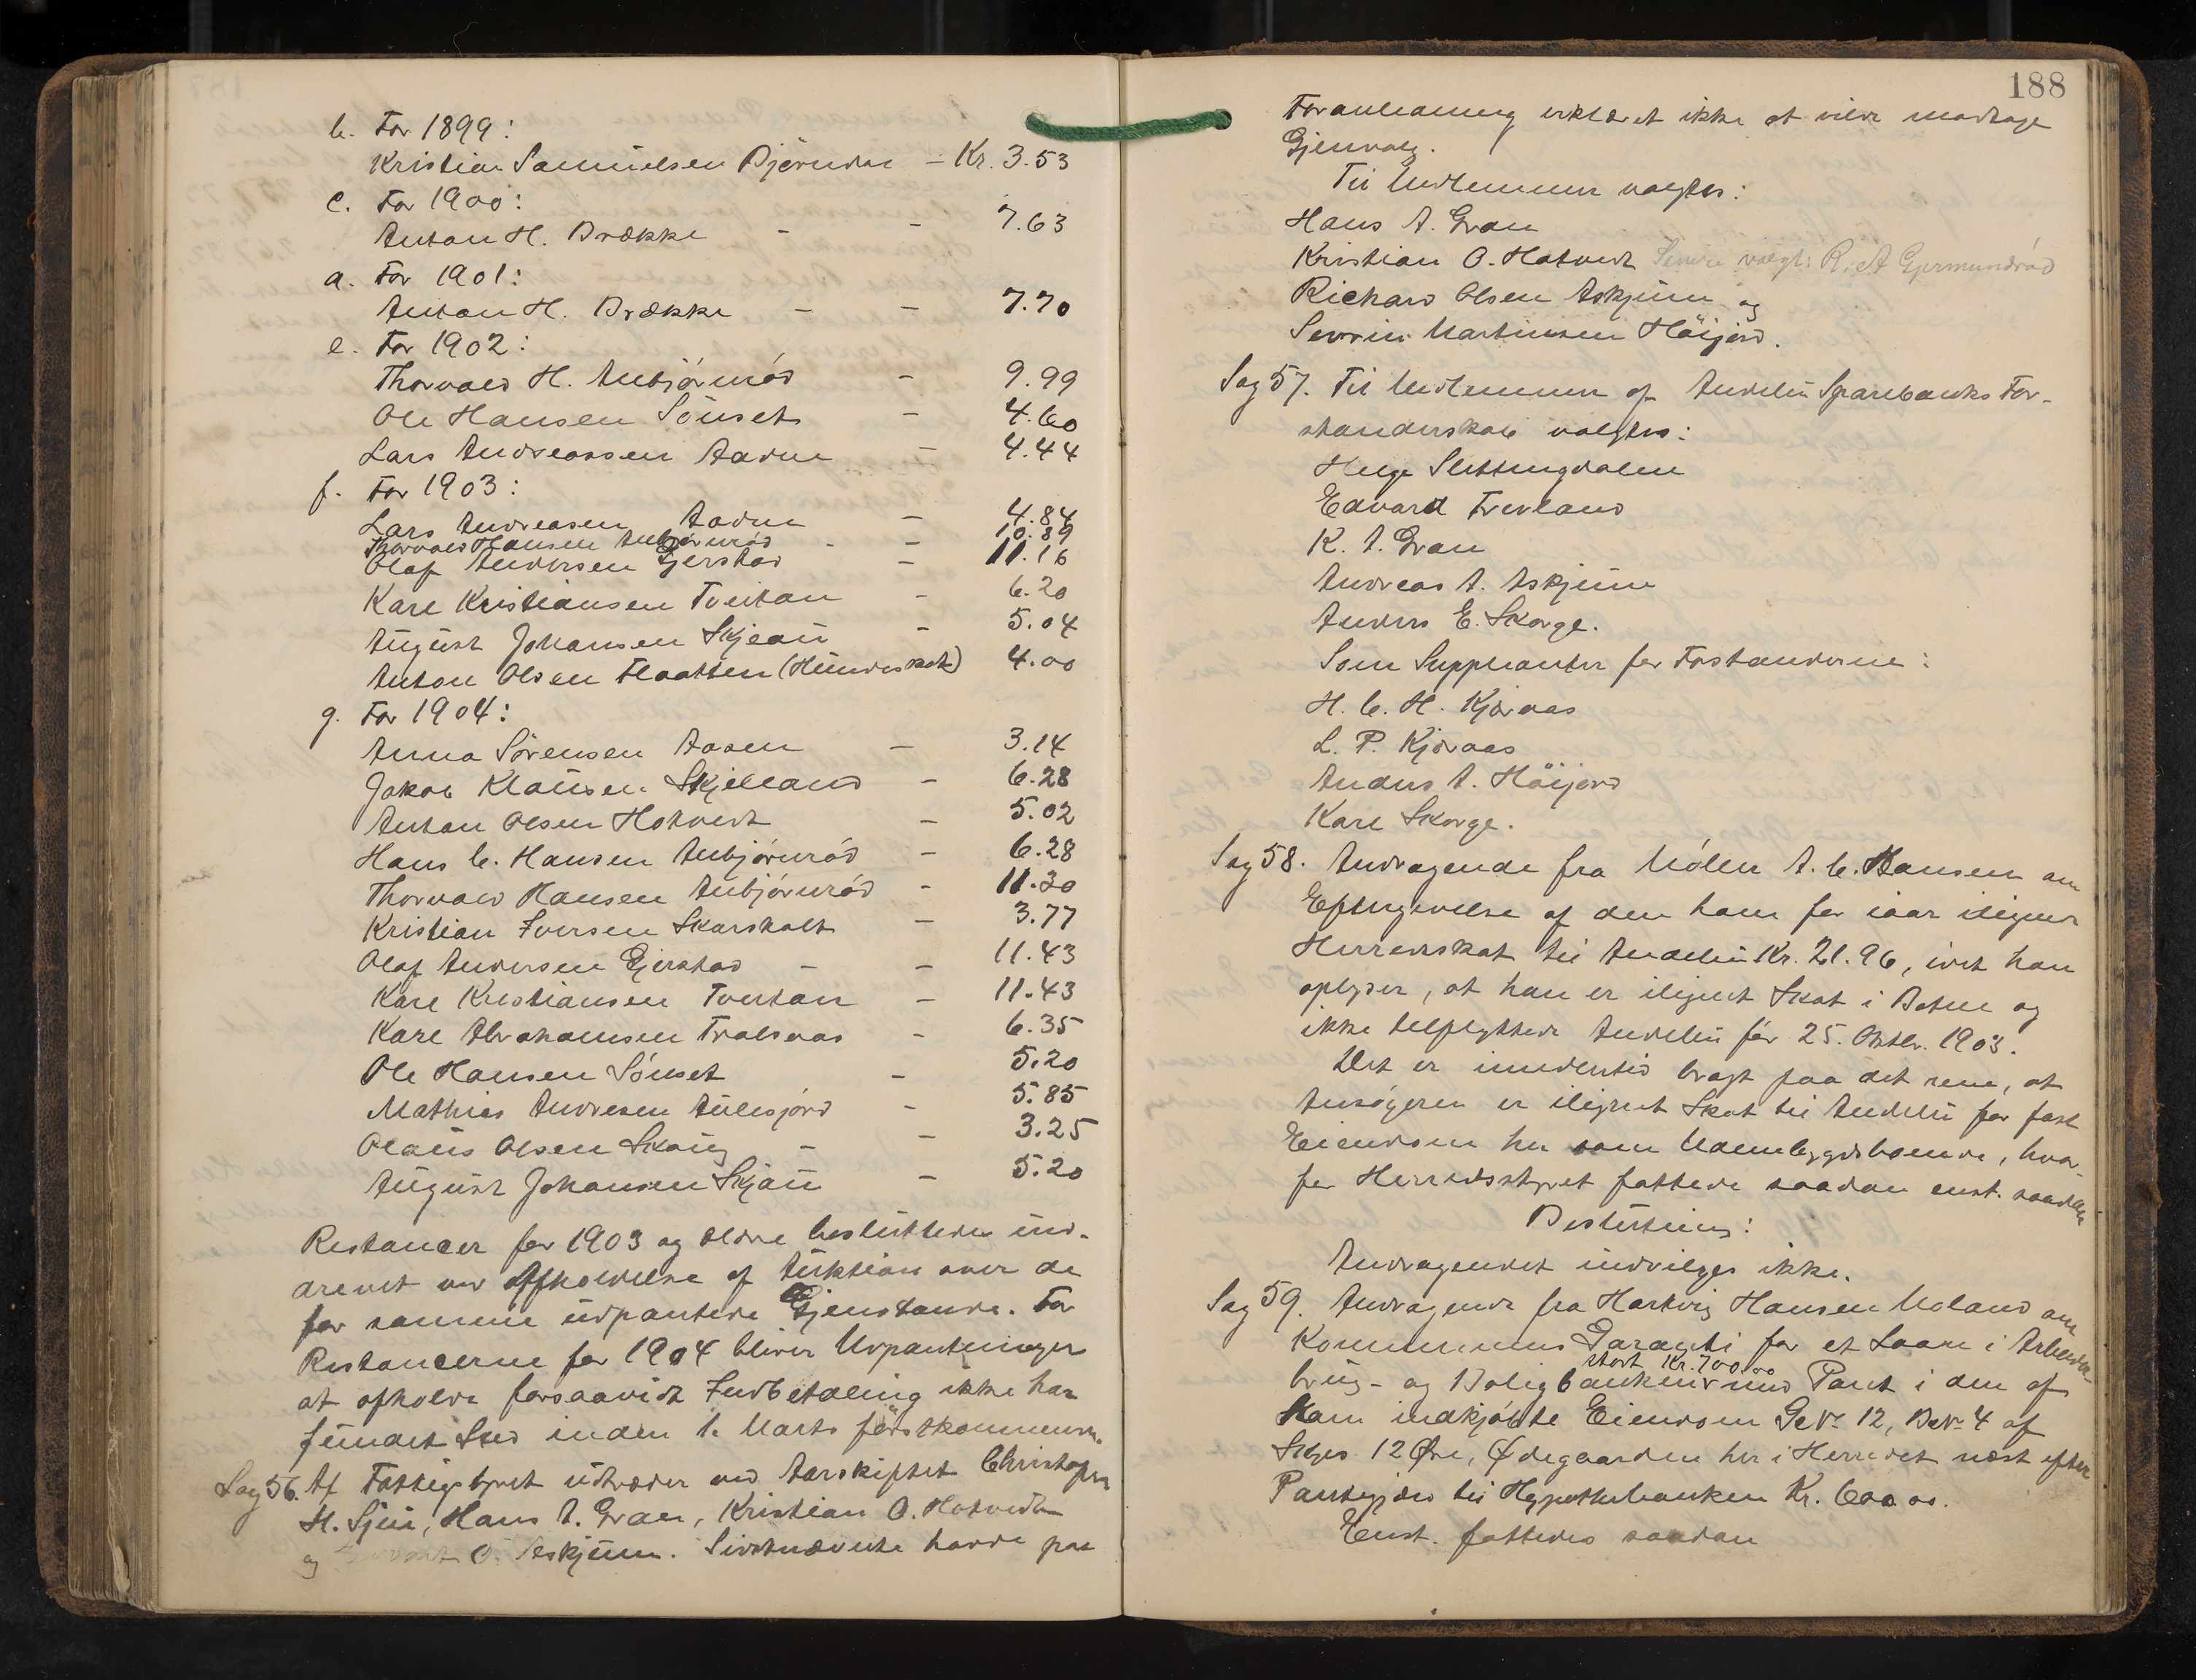 b. For 1899:
Kristian Samuelsen Bjørndal – Kr. 3.53
c. For 1900:
Anton H. Brække – – 7.63
d. For 1901:
Anton H. Brække – – 7.70
e. For 1902:
Thorvald H. Aubjørnrød – 9.99
Ole Hansen Sönset – 4.60
Lars Andreassen Aadne – 4.44
f. For 1903:
Lars Andreasen Aadne – 4.84
Thorvald Hansen Aubjørnrød – – 10.89
Olaf Andersen Gjerstad – 11.16
Karl Kristiansen Tveitan – 6.20
August Johansen Skjeau – 5.04
Anton Olsen Flaatten (Hundeskat) 4.00
g. For 1904:
Anna Sørensen Aasen – 3.14
Jakob Klausen Skjelland – 6.28
Anton Olsen Hotvedt – 5.02
Hans C. Hansen Aubjørnrød – 6.28
Thorvald Hansen Aubjørnrød – 11.30
Kristian Iversen Skarsholt – 3.77
Olaf Andersen Gjerstad – – 11.43
Karl Kristiansen Tveitan – 11.43
Karl Abrahamsen Trolsaas – 6.35
Ole Hansen Sönset – 5.20
Mathias Andresen Aulesjord – 5.85
Olaus Olsen Skaug – – 3.25
August Johansen Skjau – 5.20
Restancer for 1903 og ældre besluttedes ind-
drevet ved Afholdelse af Auktion over de
for samme udpantede Gjenstande. For
Restancerne for 1904 bliver Udpantninger
at afholde forsaavidt Indbetaling ikke har
fundet Sted inden 1. Marts førstkommende.
Sag 56. Af Fattigstyret udtræder ved Aarskiftet Christopher
H. Sjui, Hans A. Gran, Kristian O. Hotvedt
og O. Askjum. Sidstnævnte havde paa
188
Foranledning erklæret ikke at ville modtage
Gjenvalg.
Til Medlemmer valgtes:
Hans A. Gran
Kristian O. Hotvedt Senere valgt: R. A. Gjermundrød
Richard Olsen Askjum og
Severin Martinsen Höijord.
Sag 57. Til Medlemmer af Andebu Sparebanks For-
standerskab valgtes:
Helge Slettingdalen
Edvard Trevland
K. A. Gran
Andreas A. Askjum
Anders E. Skorge.
Som Suppleanter for Forstanderne:
H. C. H. Kjæraas
L. P. Kjæraas
Anders A. Höijord
Karl Skorge.
Sag 58. Andragende fra Møller A. C. Hansen om
Eftergivelse af den ham for iaar ilignet
Herredsskat til Andebu Kr. 21.96, idet han
oplyser, at han er ilignet Skat i Botne og
ikke tilflyttede Andebu før 25. Oktbr. 1903.
Det er imidlertid bragt paa det rene, at
Ansøgeren er ilignet Skat til Andebu for fast
Eiendom her som Udenbygdsboende, hvor-
for Herredsstyret fattede saadan enst. saadan
Beslutning:
Andragendet indvilges ikke.
Sag 59. Andragende fra Hartvig Hansen Moland om
Kommunens Garanti for et Laan i Arbeider-
brug- og Boligbanken stort Kr. 700.00 mod Pant i den af
ham indkjøbte Eiendom G. Nr. 12, B. Nr. 4 af
Skyld 12 Øre, Ødegaarden her i Herredet næst efter
Pantegjæld til Hypothekbanken Kr. 600.00.
Enst. fattedes saadan